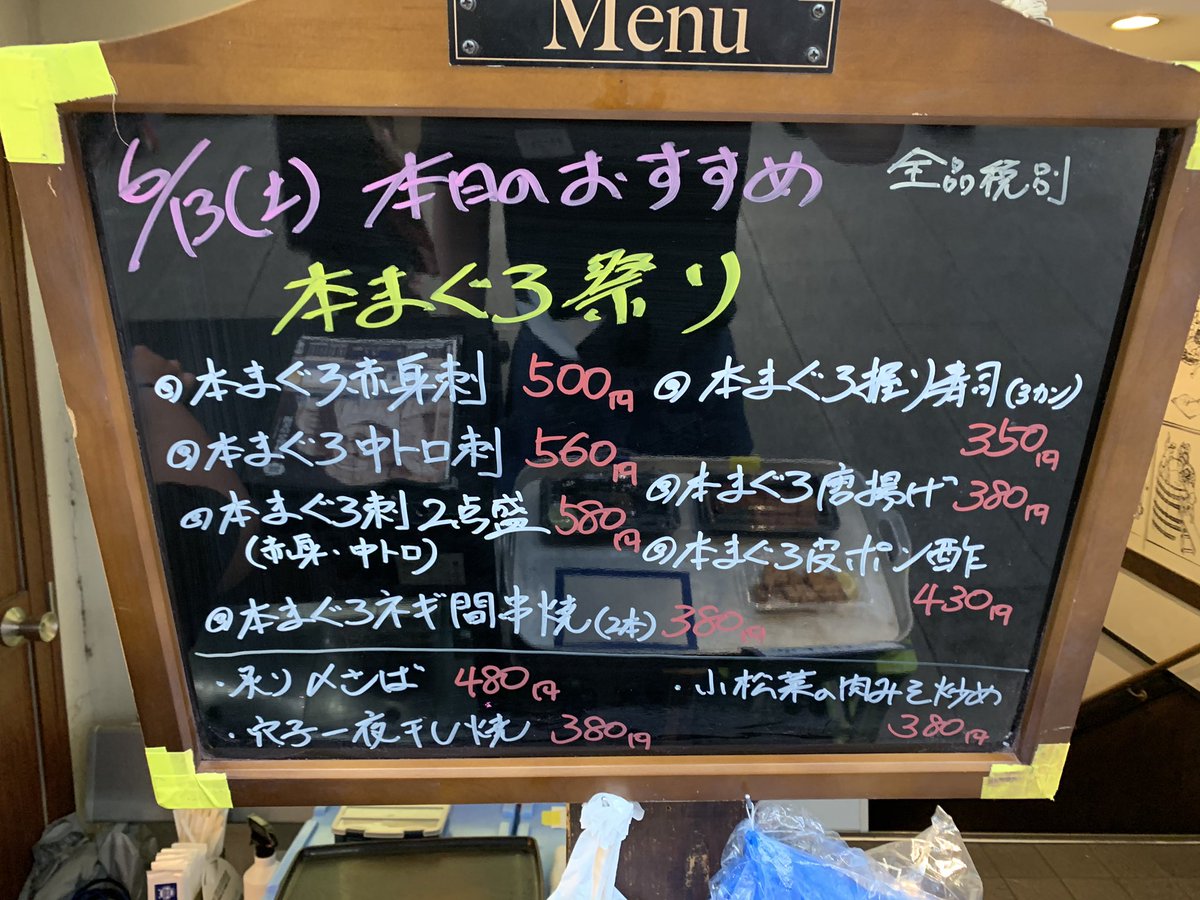 Menu
6/13(土) 本日のおすすめ 全品税別
本まぐろ祭り
本まぐろ赤身刺 500円
本まぐろ中トロ刺 560円
本まぐろ刺2点盛 580円
(赤身・中トロ)
本まぐろネギ間串焼(2本) 380円
本まぐろ握り寿司(3カン)
350円
本まぐろ唐揚げ 380円
本まぐろ皮ポン酢
430円
・炙り〆さば 480円
・穴子一夜干し焼 380円
・小松菜の肉みそ炒め
380円